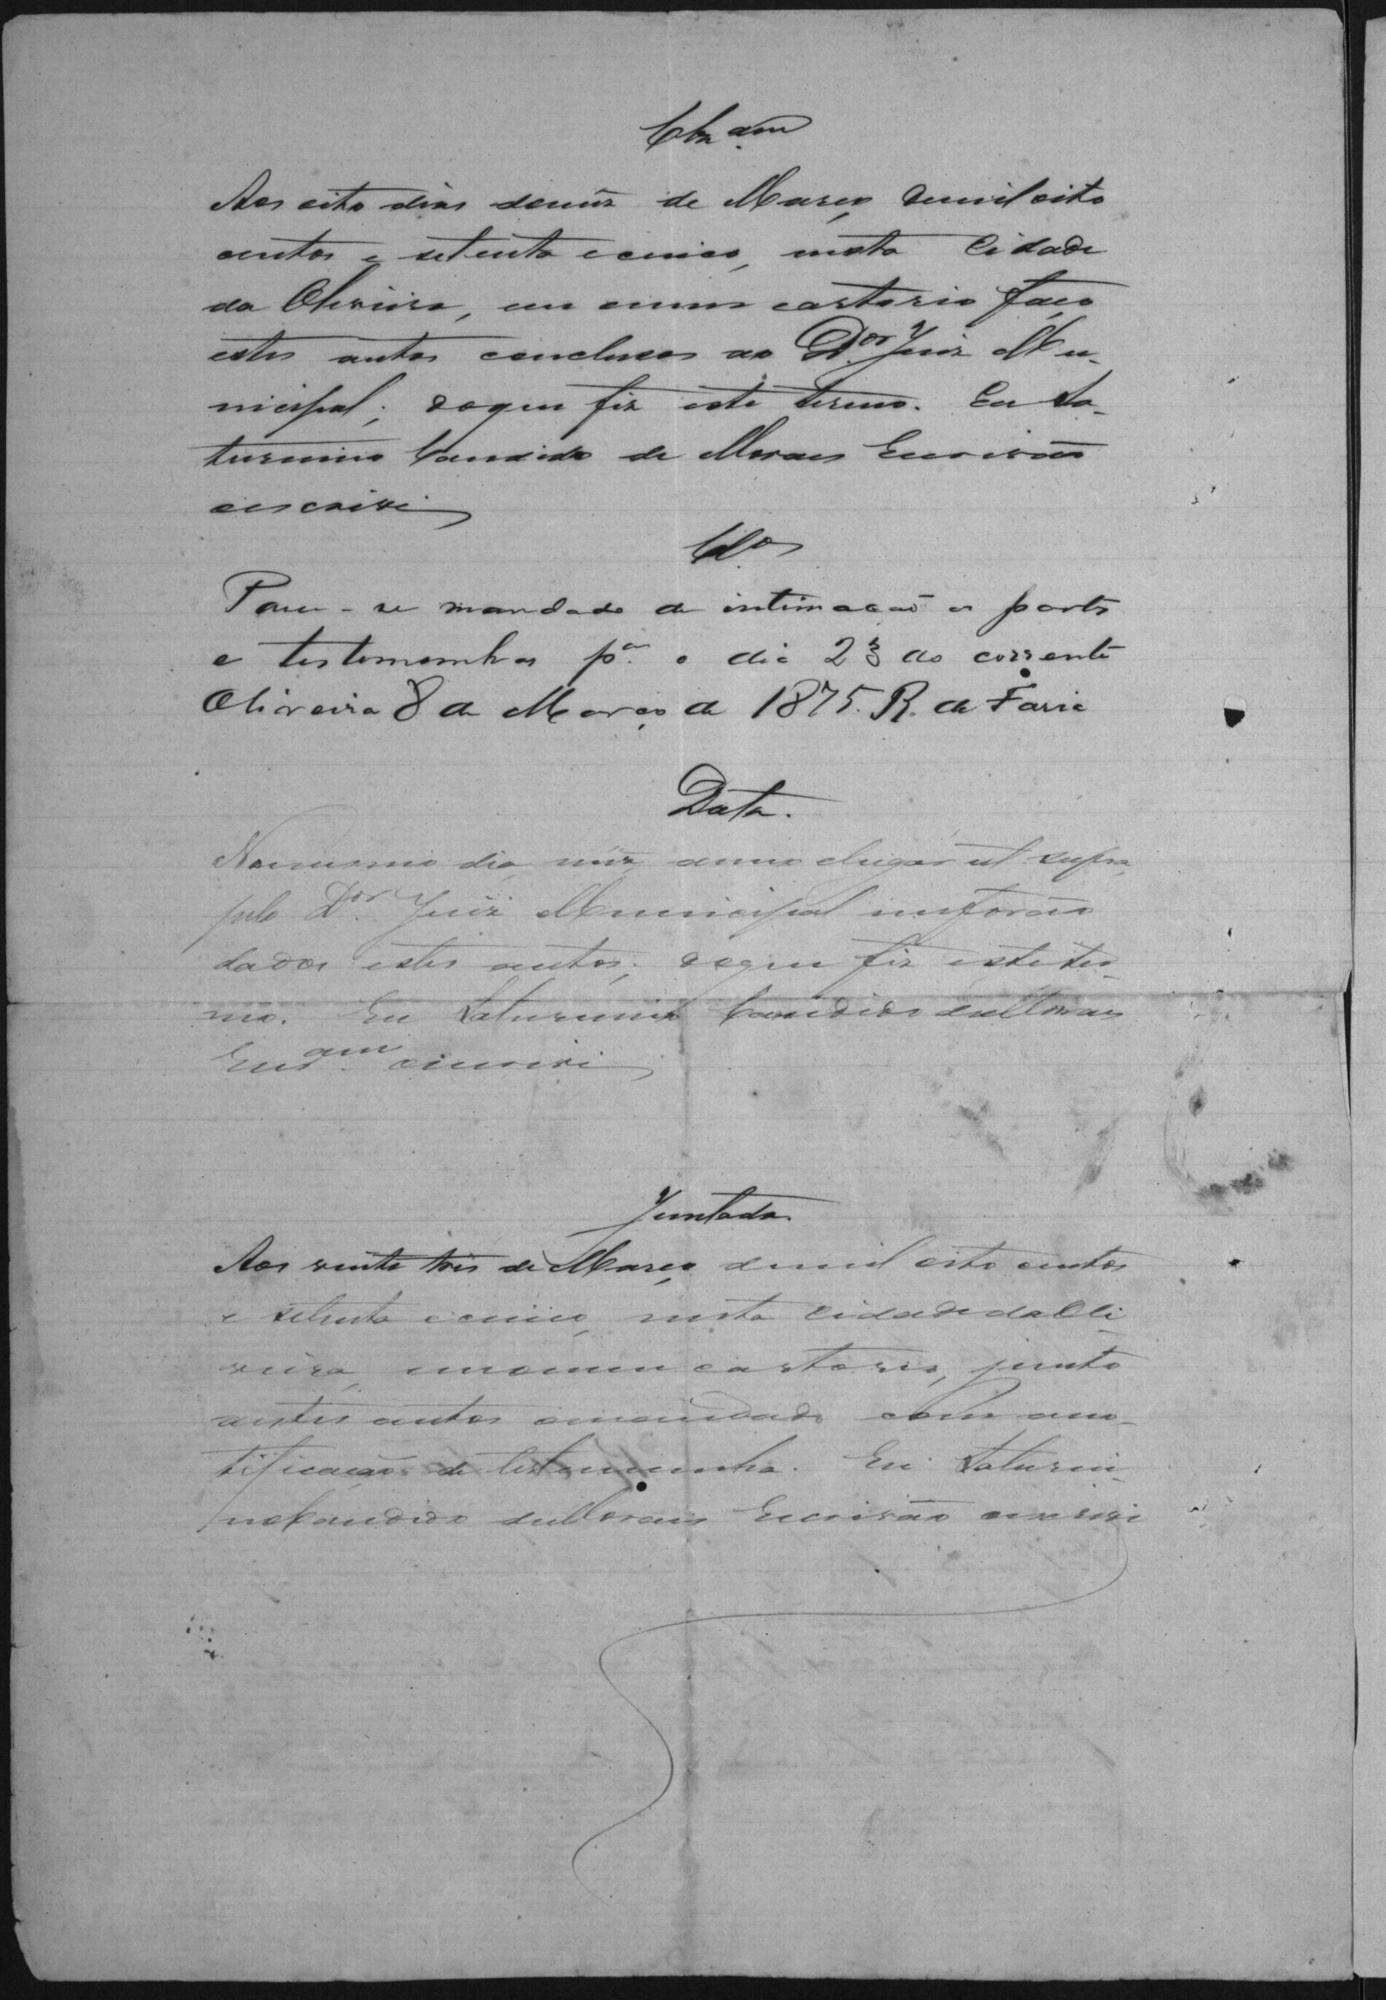 Clz.am
Aos oito dias do mez de Março de mil oito
centos e setenta e cinco, nesta Cidade
da Oliveira, em meu cartorio faço
estes autos conclusos ao D.or Juiz Mu-
nicipal; do que fiz este termo. Eu Sa-
turnino Candido de Moraes Escrivão
escrivi
Cl.os
Passe-se mandado de intimação as partes
e testemunhas p.a o dia 23 do corrente
Oliveira 8 de Março de 1875. R. de Faria
Data.
No mesmo dia, mez, anno e lugar ut supra,
pelo D.or Juiz Municipal me forão
dados estes autos; do que fiz este ter-
mo. Eu Saturnino Candido de Moraes
Escr.am escrivi
Juntada.
Aos vinte tres de Março de mil oito centos
e setenta e cinco, nesta Cidade da Oli
veira, em o meu cartorio, junto
a estes autos o mandado com a no-
tificação de testemunha. Eu Saturni
no Candido de Moraes Escrivão escrivi